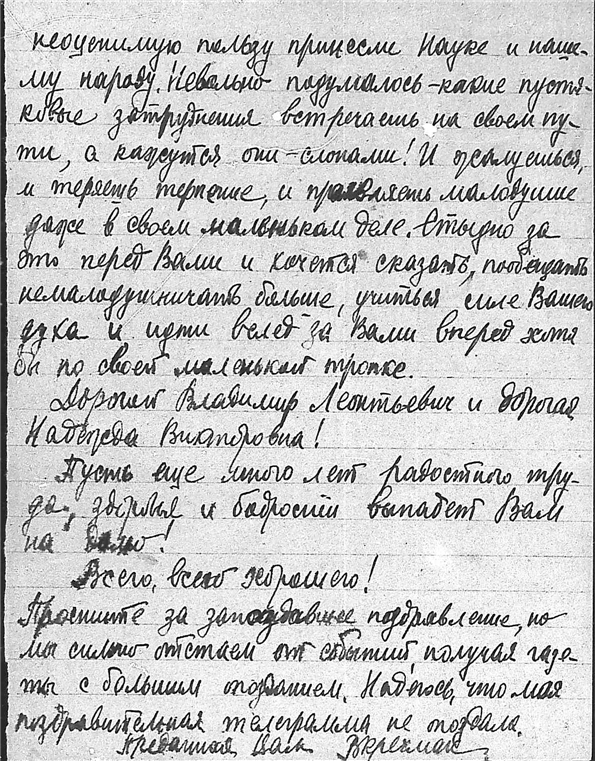 неоценимую пользу принесли Науке и наше-
му народу. Невольно подумалось – какие пустя-
ковые затруднения встречаешь на своем пу-
ти, а кажутся они – слонами! И жалуешься,
и теряешь терпение, и проявляешь малодушие
даже в своем маленьком деле. Стыдно за
это перед Вами и хочется сказать, пообещать
немалодушничать больше, учиться силе Вашего
духа и идти вслед за Вами вперед хотя
бы по своей маленькой тропке.
Дорогой Владимир Леонтьевич и дорогая
Надежда Викторовна!
Пусть еще много лет радостного тру-
да, здоровья и бодрости выпадет Вам
на долю!
Всего, всего хорошего!
Простите за запоздавшее поздравление, но
мы сильно отстаем от событий, получая газе-
ты с большим опозданием. Надеюсь, что моя
поздравительная телеграмма не опоздала.
Преданная Вам